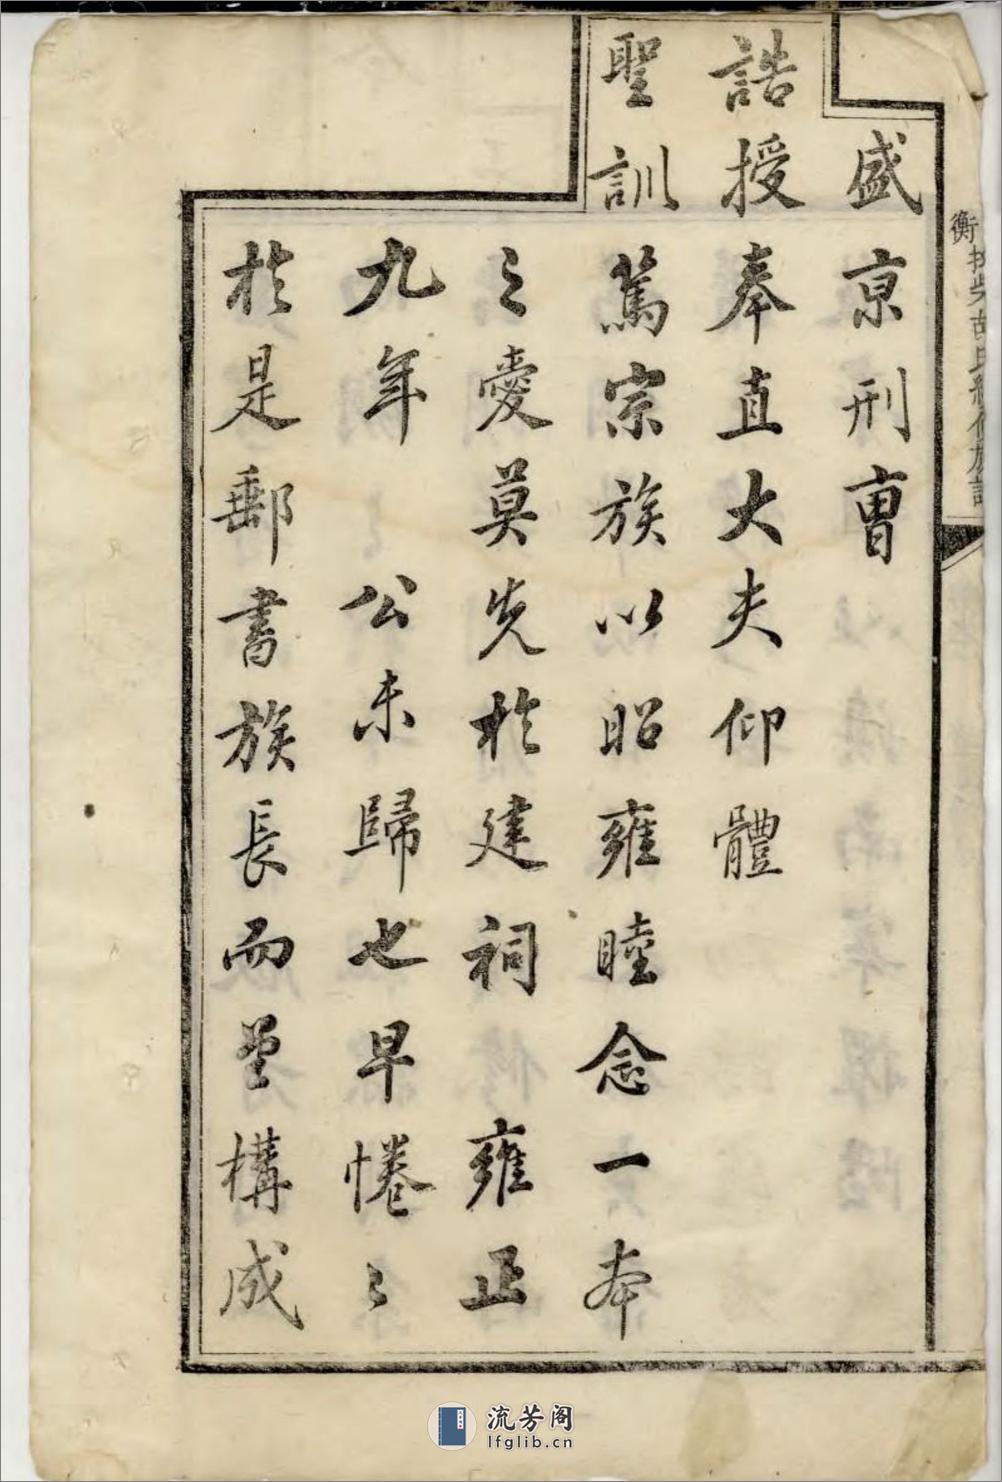 盛京刑曹
誥授奉直大夫仰體
聖訓篤宗族以昭雍睦念一本
之愛莫先於建祠 雍正
九年 公未歸也早惓〻
於是郵書族長而堂構成
流芳阁
lfglib.cn